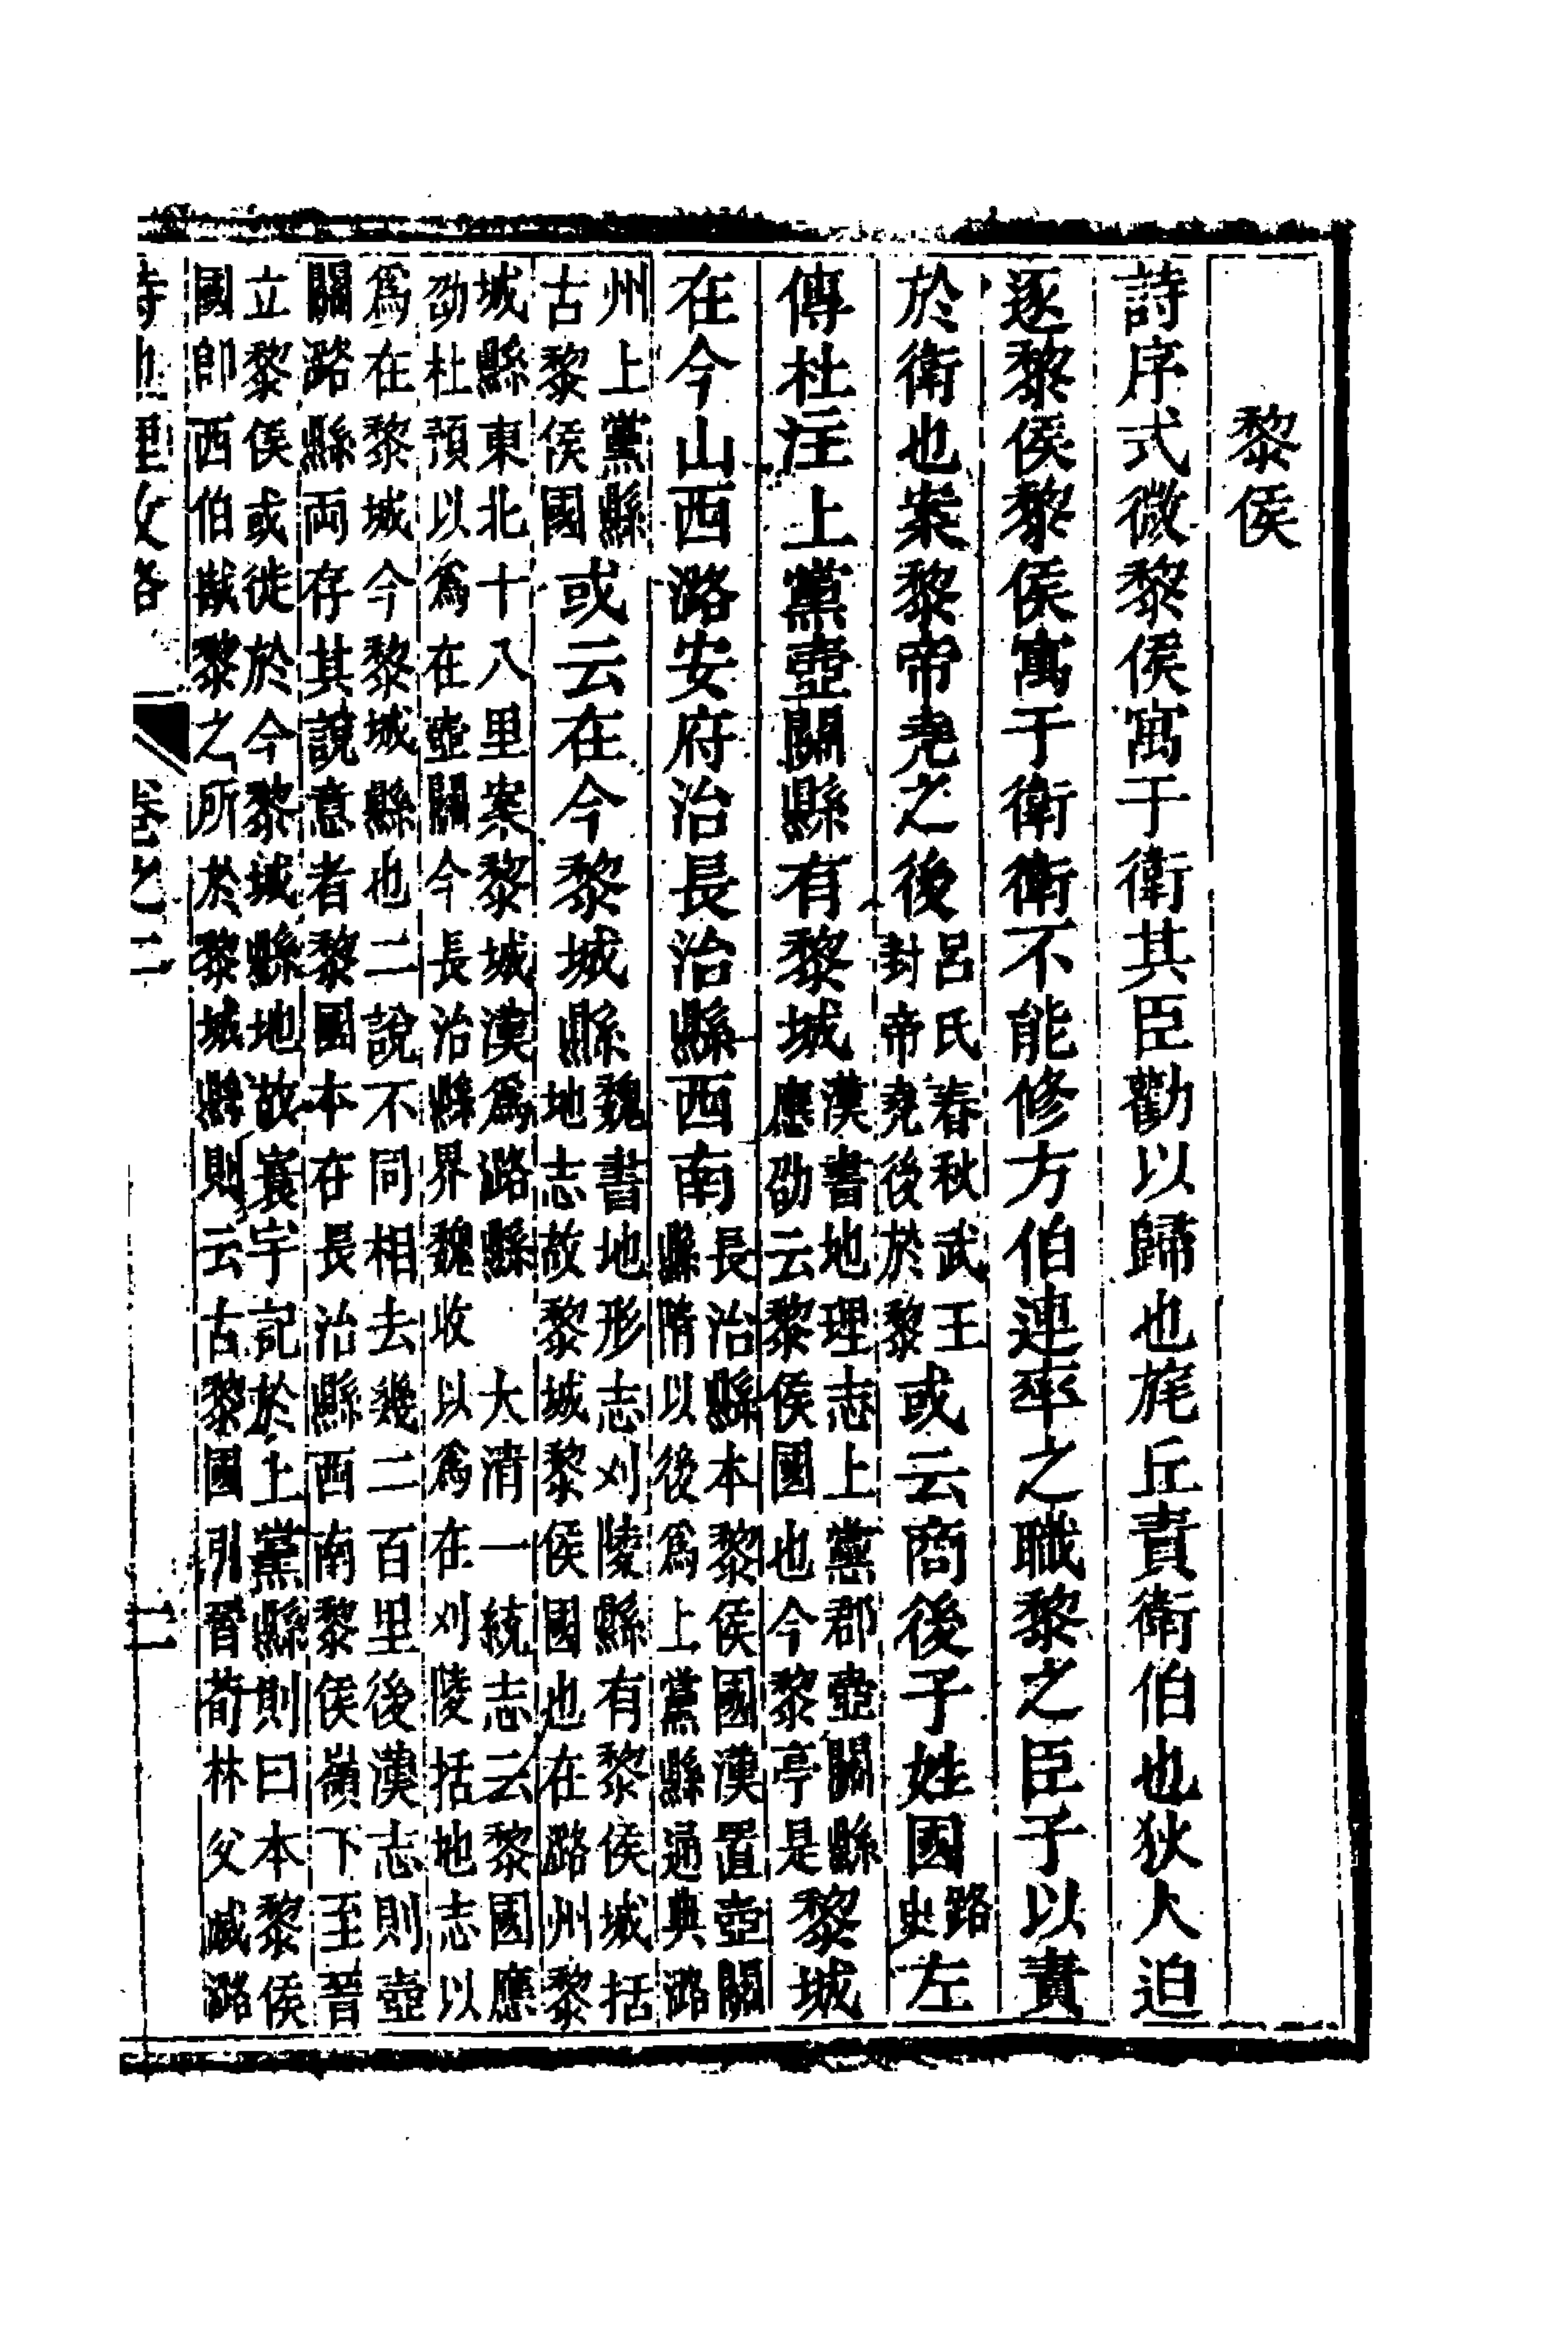 黎侯
詩序式微黎侯寓于衛其臣勸以歸也旄丘責衛伯也狄人迫
逐黎侯黎侯寓于衛衛不能修方伯連率之職黎之臣子以責
於衛也案黎帝堯之後呂氏春秋武王封帝堯後於黎或云商後子姓國路史左
傳杜注上黨壺關縣有黎城漢書地理志上黨郡壺關縣應劭云黎侯國也今黎亭是黎城
在今山西潞安府治長治縣西南長治縣本黎侯國漢置壺關縣隋以後爲上黨縣通典潞
州上黨縣古黎侯國或云在今黎城縣魏書地形志刈陵縣有黎侯城括地志故黎城黎侯國也在潞州黎
城縣東北十八里案黎城漢爲潞縣 大清一統志云黎國應劭杜預以爲在壺關今長治縣界魏收以爲在刈陵括地志以
爲在黎城今黎城縣也二說不同相去幾二百里後漢志則壺關潞縣両存其說意者黎國本在長治縣西南黎侯嶺下至晉
立黎侯或徙於今黎城縣地故寰宇記於上黨縣則曰本黎侯國卽西伯戡黎之所於黎城縣則云古黎國引晉荀林父滅潞
詩地理攷略 卷之二 二